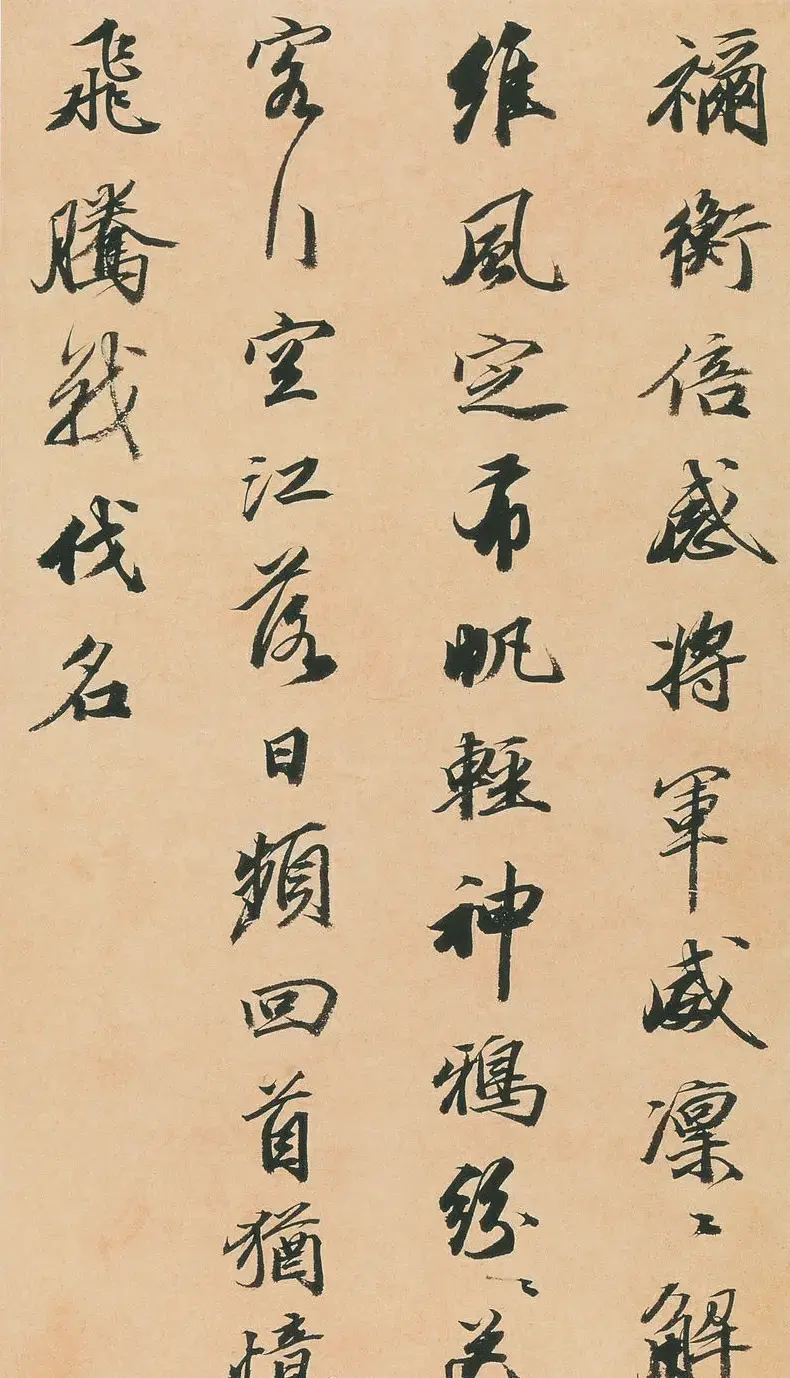 禰衡倍感將軍威凜〻解
維風定布帆輕神鴉紛〻送
客行空江落日頻回首猶憶
飛騰戰伐名